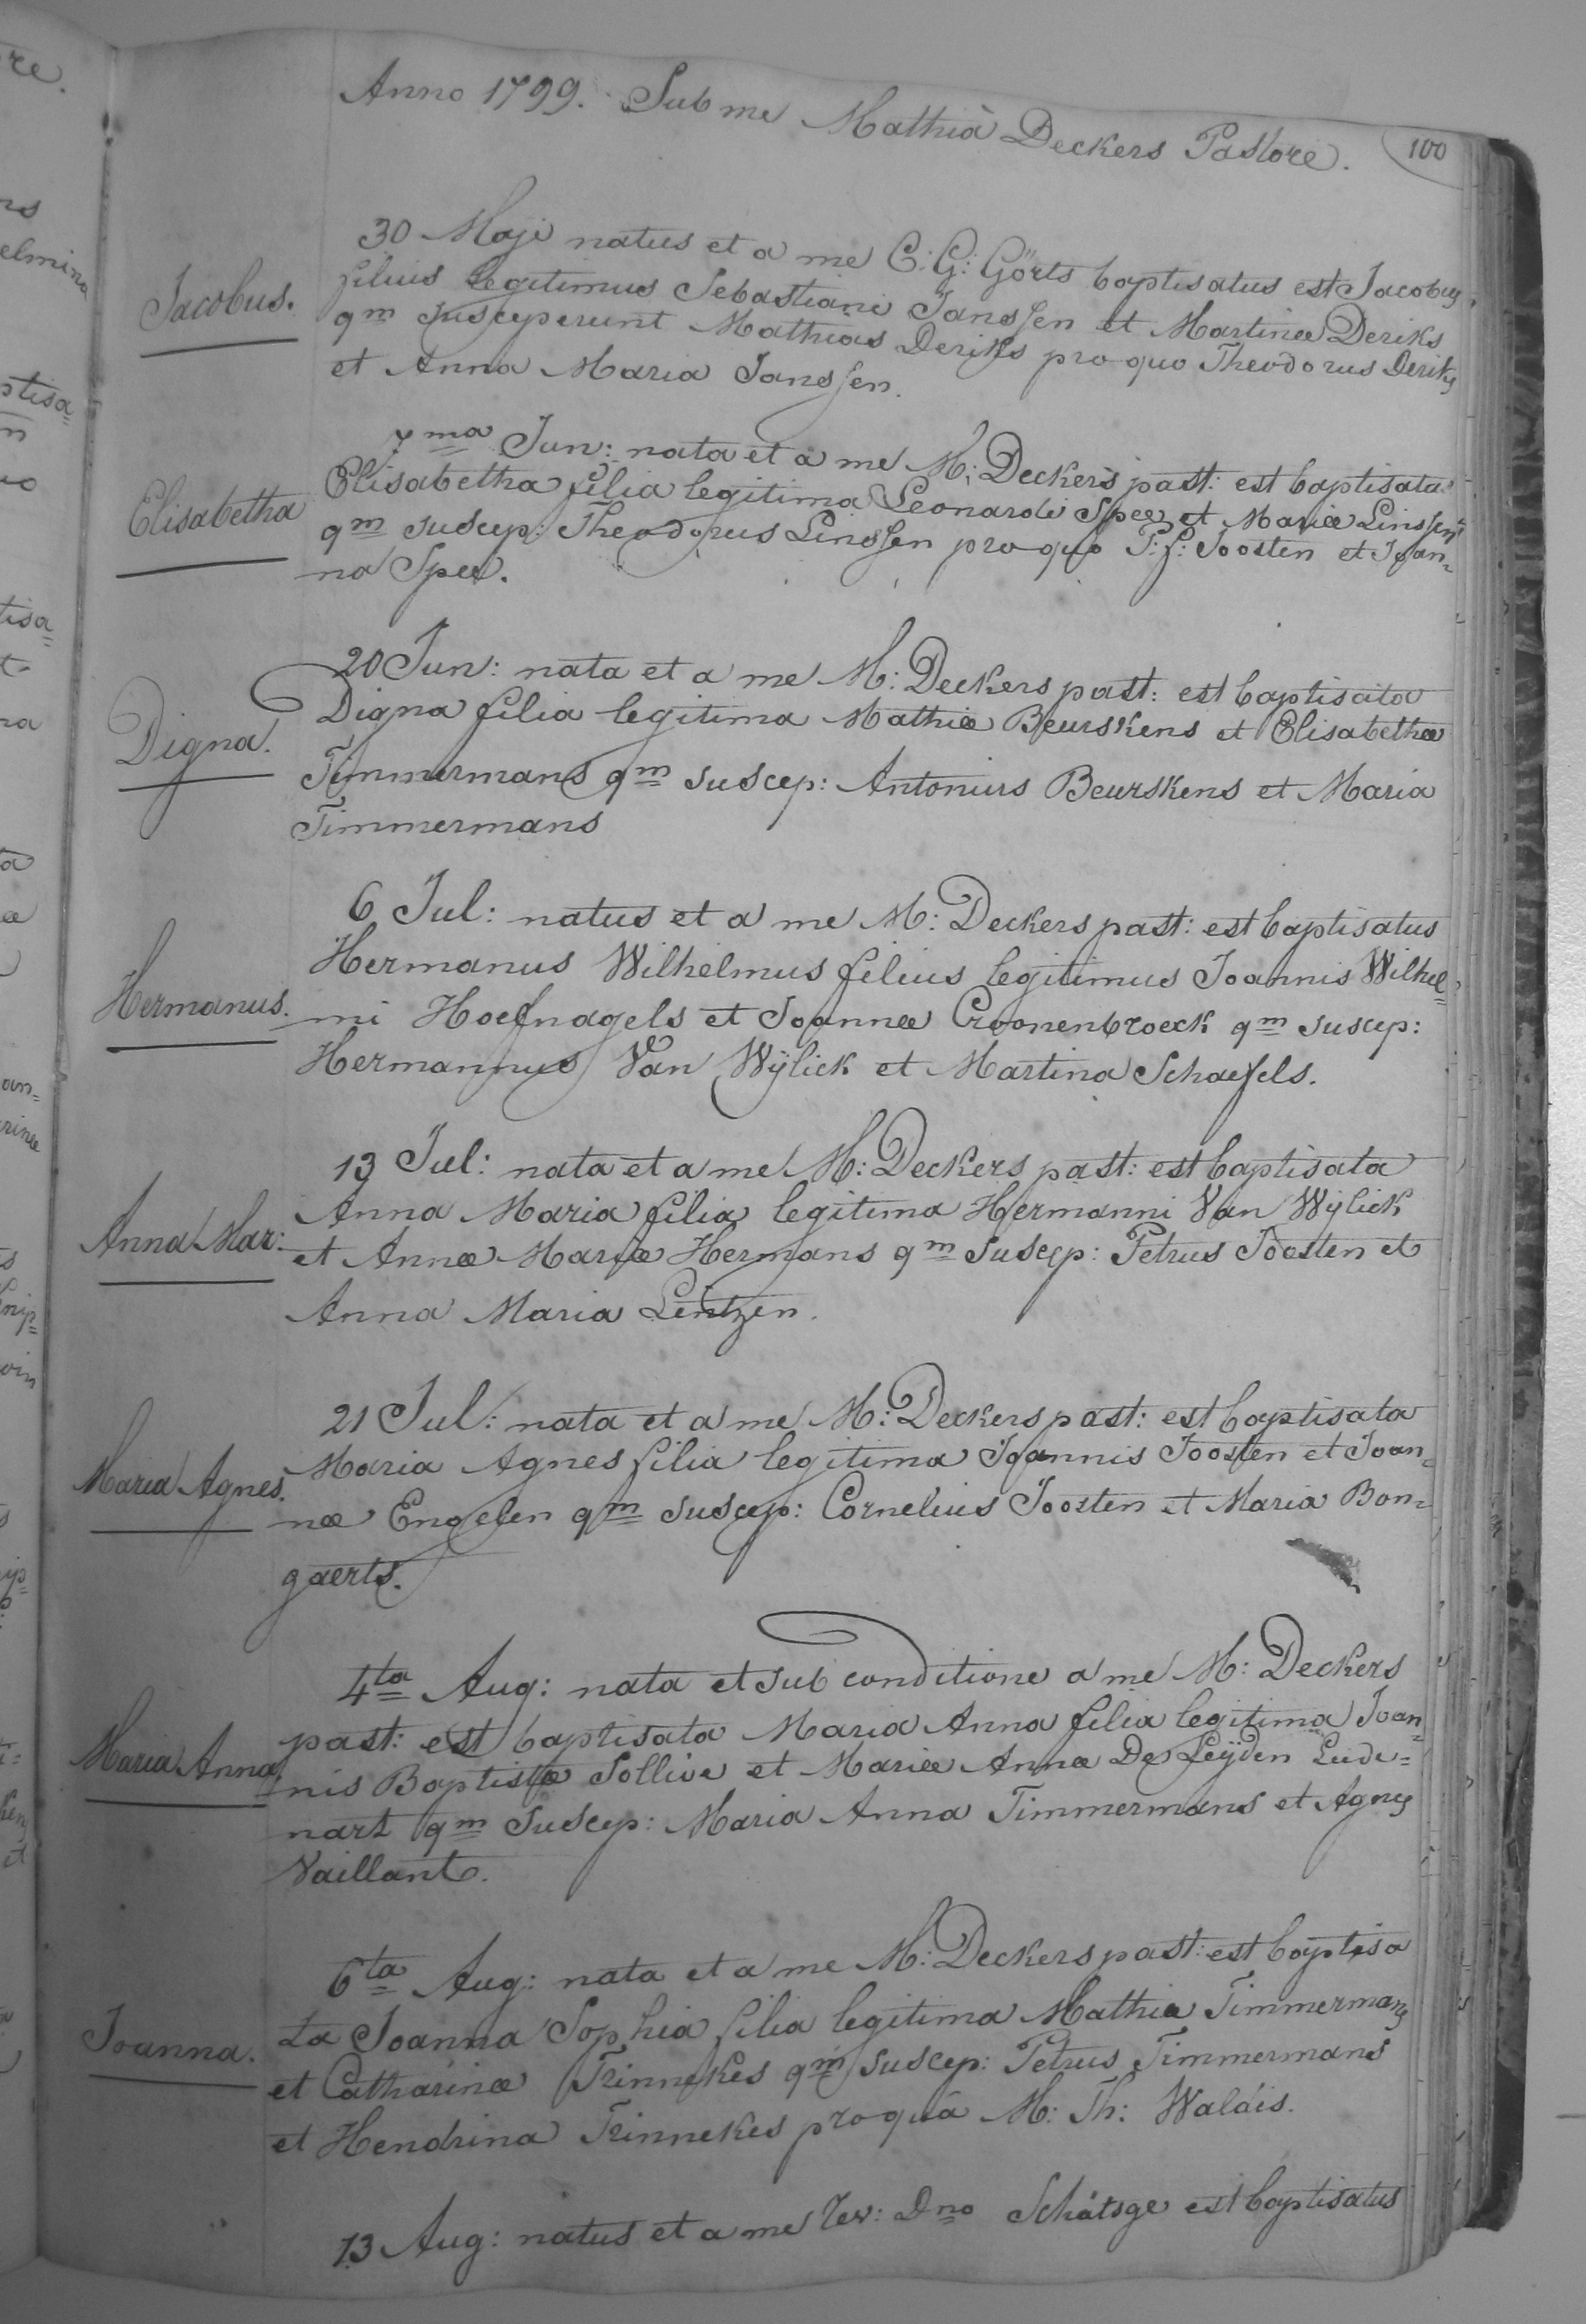 Anno 1799. Sub me Mathiâ Deckers Pastore.
100
30 Maji natus et a me C: G: Görts baptisatus est Jacobus,
Jacobus.
filius legitimus Sebastiani Janssen et Martinæ Deriks
qm susceperunt Mathias Deriks pro quo Theodorus Deriks
et Anna Maria Janssen.
7ma Jun: nata et a me M: Deckers past: est baptisata
Elisabetha
Elisabetha filia legitima Leonardi Spee et Mariæ Linssen
qm suscep: Theodorus Linssen pro quo P: f: Joosten et Joan=
na Spee.
20 Jun: nata et a me M: Deckers past: est baptisata
Digna.
Digna filia legitima Mathiæ Beurskens et Elisabethæ
Timmermans qm suscep: Antonius Beurskens et Maria
Timmermans
6 Jul: natus et a me M: Deckers past: est baptisatus
Hermanus Wilhelmus filius legitimus Joannis Wilhel=
Hermanus.
mi Hoefnagels et Joannæ Croonenbroeck qm suscep:
Hermannus Van Wÿlick et Martina Schaefels.
13 Jul: nata et a me M: Deckers past: est baptisata
Anna Maria filia legitima Hermanni Van Wÿlick
Anna Mar:
et Annæ Mariæ Hermans qm suscep: Petrus Joosten et
Anna Maria Lintzen.
21 Jul: nata et a me M: Deckers past: est baptisata
Maria Agnes filia legitima Joannis Joosten et Joan=
Maria Agnes.
næ Engelen qm suscep: Cornelius Joosten et Maria Bon=
gaerts.
4ta Aug: nata et sub conditione a me M: Deckers
past: est baptisata Maria Anna filia legitima Joan=
Maria Anna
nis Baptistæ Sollive et Mariæ Annæ De Leÿden
nart qm suscep: Maria Anna Timmermans et Agnes
Vaillant.
6ta Aug: nata et a me M: Deckers past: est baptisa
Joanna.
ta Joanna Sophia filia legitima Mathiæ Timmermans
et Catharinæ Trinnekes qm suscep: Petrus Timmermans
et Hendrina Trinnekes pro quâ M: Th: Waláis.
13 Aug: natus et a me rev: Dno Schátsge est baptisatus